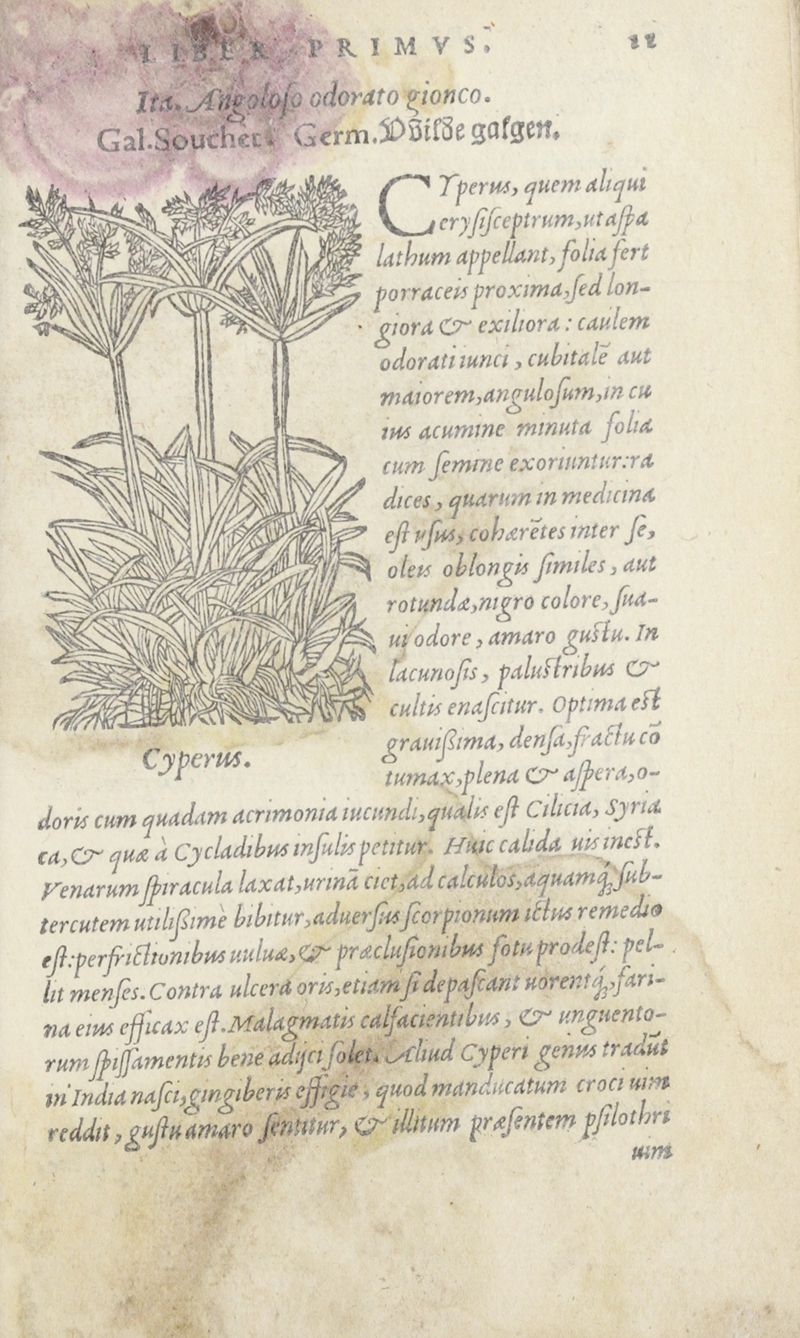 LIBER PRIMVS. 11
Ita. Angoloſo odorato gionco.
Gal. Souchet. Germ. Wilde galgen.
CYperus, quem aliqui
eryſiſceptrum, ut aſpa
lathum appellant, folia fert
porraceis proxima, ſed lon-
giora & exiliora: caulem
odorati iunci, cubitalē aut
maiorem, anguloſum, in cu
ius acumine minuta folia
cum ſemine exoriuntur: ra
dices, quarum in medicina
eſt uſus, cohærētes inter ſe,
oleis oblongis ſimiles, aut
rotundæ, nigro colore, ſua-
ui odore, amaro guſtu. In
lacunoſis, paluſtribus &
cultis enaſcitur. Optima eſt
grauißima, denſa, fractu cō
tumax, plena & aſpera, o-
Cyperus.
doris cum quadam acrimonia iucundi, qualis eſt Cilicia, Syria
ca, & quæ à Cycladibus inſulis petitur. Huic calida uis ineſt.
Venarum ſpiracula laxat, urinā ciet, ad calculos, aquamq́ꝫ ſub-
tercutem utilißimè bibitur, aduerſus ſcorpionum ictus remedio
eſt: perfrictionibus uuluæ, & præcluſionibus fotu prodeſt: pel-
lit menſes. Contra ulcera oris, etiam ſi depaſcant uorentq́ꝫ, fari-
na eius efficax eſt. Malagmatis calfacientibus, & unguento-
rum ſpiſſamentis bene adijci ſolet. Aliud Cyperi genus tradūt
in India naſci, gingiberis effigie, quod manducatum croci uim
reddit, guſtu amaro ſentitur, & illitum præſentem pſilothri
uim